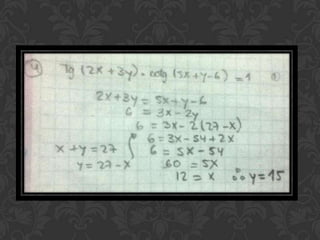 4) Tg (2x + 3y) . cotg (5x + y - 6) = 1
2x + 3y = 5x + y - 6
6 = 3x - 2y
6 = 3x - 2(27 - x)
6 = 3x - 54 + 2x
x + y = 27
6 = 5x - 54
y = 27 - x
60 = 5x
12 = x ∴ y = 15